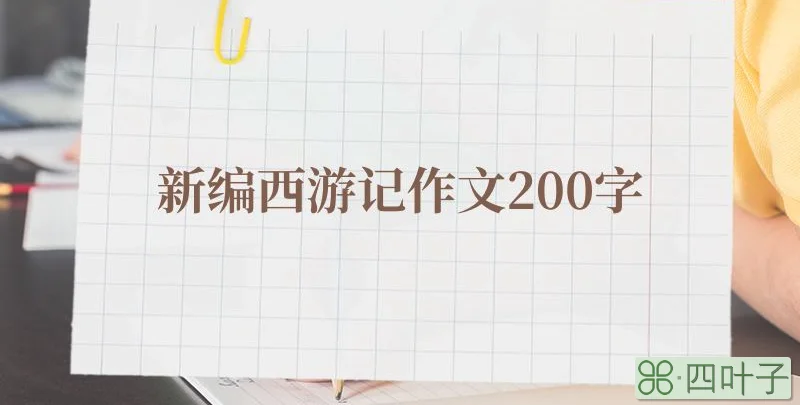 新编西游记作文200字
四叶子